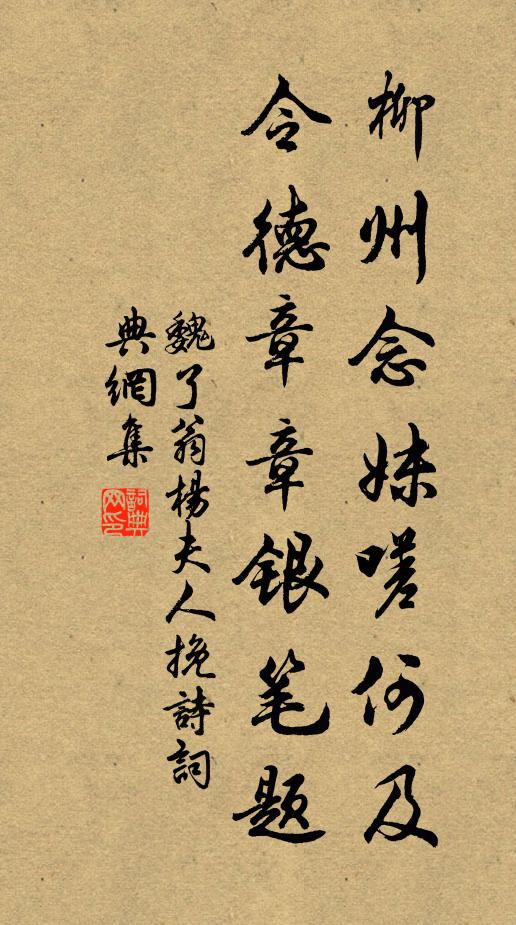 柳州念妹嗟何及
令德章章银笔题
魏了翁杨夫人挽詩詞
典網集
詞典网印